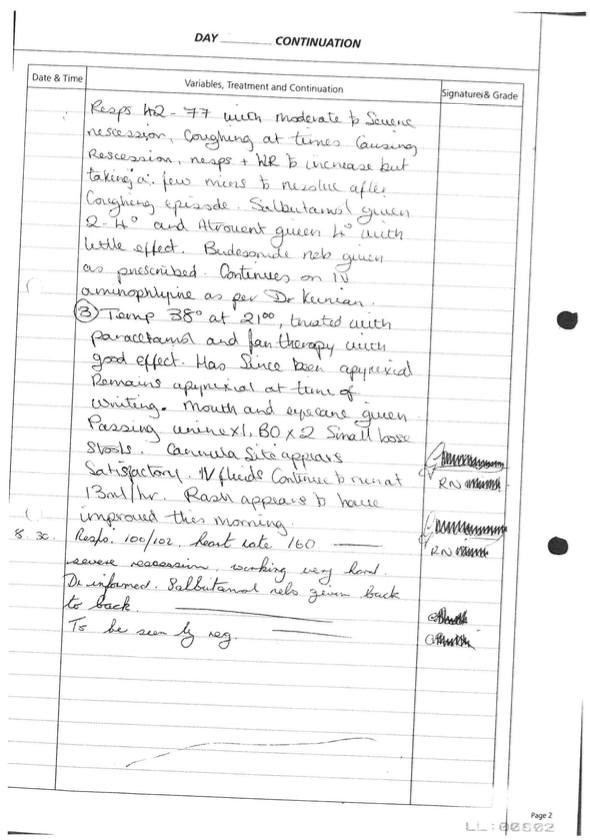 DAY ______ CONTINUATION
Date & Time
Variables, Treatment and Continuation
Signature/& Grade
Resps 42-77 with moderate to Severe
rescession, Coughing at times Causing
Rescession, resps + HR to increase but
taking a few mins to resolve after
Coughing episode. Salbutamol given
2-4° and Atrovent given 4° with
little effect. Budesonide neb given
as prescribed. Continues on IV
aminophlyine as per Dr
③ Temp 38° at 21⁰⁰, treated with
paracetamol and fan therapy with
good effect. Has Since been apyrexial
Remains apyrexial at time of
writing. Mouth and eyecare given
Passing urine x1, BO x 2 Small loose
Stools. Cannula Site appears
Satisfactory. IV fluids Continue to run at
13ml/hr. Rash appears to have
improved this morning.
RN
8.30. Resps: 100/102, heart rate 160
RN
severe rescession, working very hard.
Dr informed. Salbutamol nebs given back
to back.
To be seen by reg.
Page 2
LL:00602